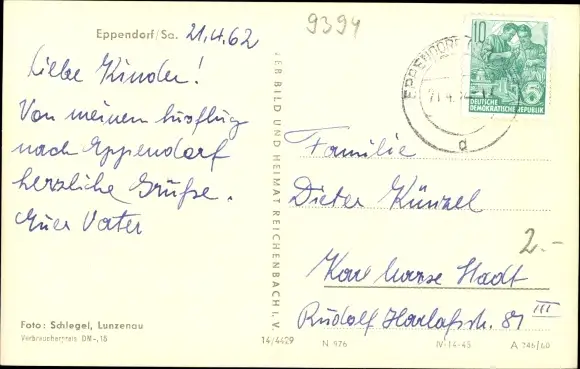 Eppendorf/Sa. 21.4.62
Liebe Kinder!
Von meinem Ausflug
nach Eppendorf
herzliche Grüße.
Euer Vater
Foto: Schlegel, Lunzenau
Verbraucherpreis DM -,18
BILD UND HEIMAT REICHENBACH I. V.
14/4429
9394
10
DEUTSCHE
DEMOKRATISCHE REPUBLIK
EPPENDORF
d
Familie
Dieter Künzel
2.-
Karl Marx Stadt
Rudolf Harlaßstr. 81 III
N 976 IV-14-45 A 746/60